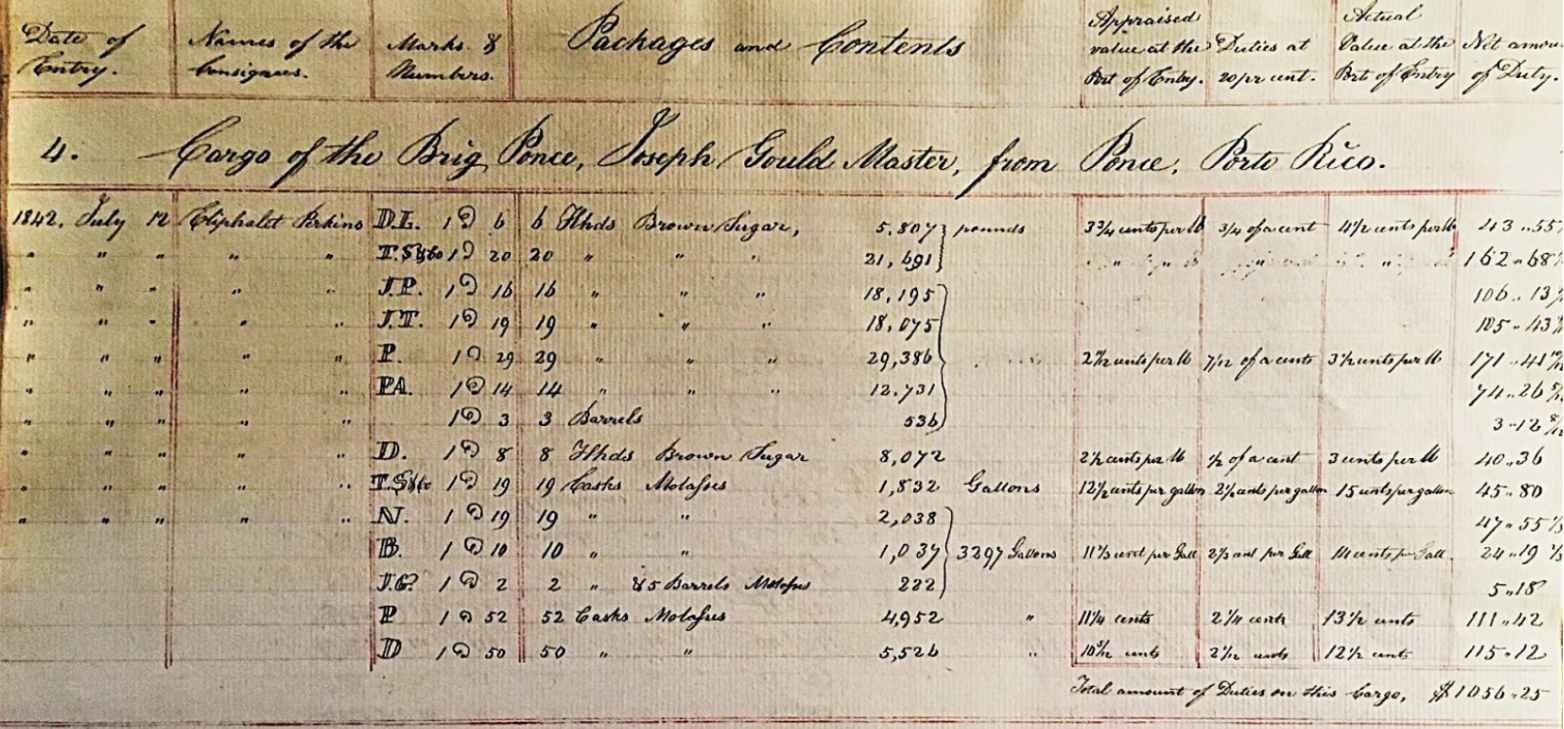 Date of Entry. Names of the Consignees. Marks & Numbers. Packages and Contents Appraised value at the Port of Entry. Duties at 20 pr cent. Actual Value at the Port of Entry Net amou of Duty.
4. Cargo of the Brig Ponce, Joseph Gould Master, from Ponce, Porto Rico.
1842. July 12 Eliphalet Perkins D.L. 1 @ 6 6 Hhds Brown Sugar, 5.807 pounds 3 3/4 cents per lb 3/4 of a cent 4 1/2 cents per lb 43 .. 55
" " " " " 1 @ 20 20 " " " 21,691 162 .. 68
" " " " " J.P. 1 @ 16 16 " " " 18,195 106 .. 13
" " " " " J.T. 1 @ 19 19 " " " 18,075 105 .. 43
" " " " " P. 1 @ 29 29 " " " 29,386 2 11/12 cents per lb 7/12 of a cents 3 1/2 cents per lb 171 .. 41
" " " " " PA. 1 @ 14 14 " " " 12.731 74 .. 26
" " " " " 1 @ 3 3 Barrels 536 3 .. 12
" " " " " D. 1 @ 8 8 Hhds Brown Sugar 8,072 2 1/2 cents per lb 1/2 of a cent 3 cents per lb 40 .. 36
" " " " " 1 @ 19 19 Casks Molasses 1,832 Gallons 12 1/2 cents per gallon 2 1/2 cents per gallon 15 cents per gallon 45 .. 80
" " " " " N. 1 @ 19 19 " " 2,038 47 .. 55 1/3
B. 1 @ 10 10 " " 1,037 3297 Gallons 11 2/3 cent per Gall 2 1/3 cent per Gall 14 cents per Gall 24 .. 19
J.G. 1 @ 2 2 " & 5 Barrels Molasses 222 5 .. 18
P 1 @ 52 52 Casks Molasses 4,952 " 11 1/4 cents 2 1/4 cents 13 1/2 cents 111 .. 42
D 1 @ 50 50 " " 5,526 " 10 5/12 cents 2 1/12 cents 12 1/2 cents 115 .. 12
Total amount of Duties on this Cargo, $1056 .. 25